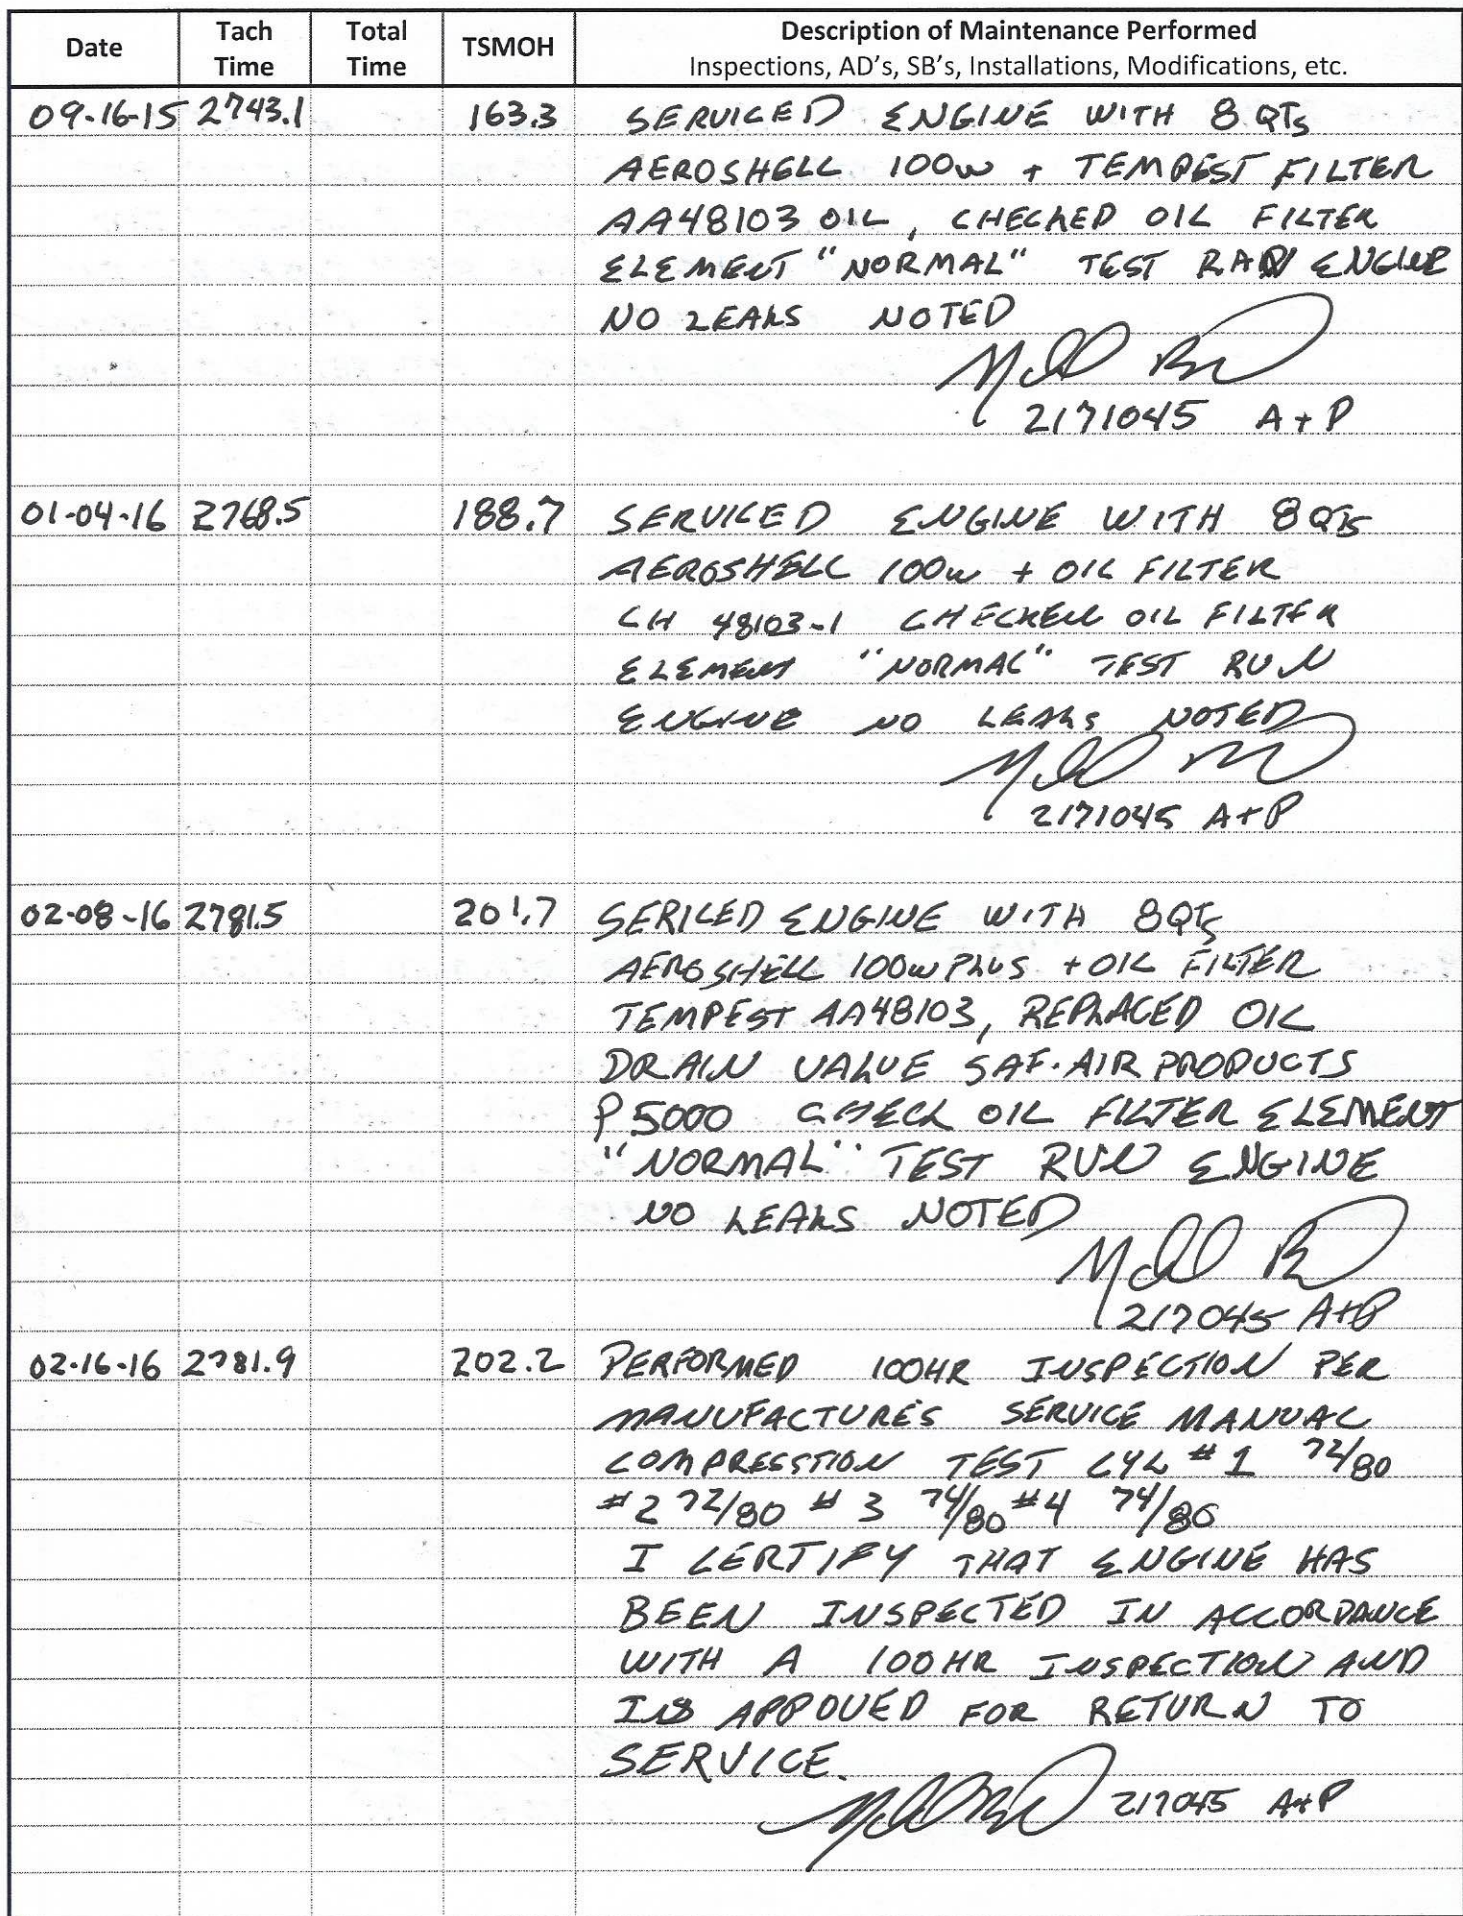 Date Tach Time Total Time TSMOH Description of Maintenance Performed
Inspections, AD's, SB's, Installations, Modifications, etc.
09-16-15 2743.1 163.3 SERVICED ENGINE WITH 8 QTS
AEROSHELL 100W + TEMPEST FILTER
AA48103 OIL, CHECKED OIL FILTER
ELEMENT "NORMAL" TEST RAN ENGINE
NO LEAKS NOTED
2171045 A+P
01-04-16 2768.5 188.7 SERVICED ENGINE WITH 8 QTS
AEROSHELL 100W + OIL FILTER
CH 48103-1 CHECKED OIL FILTER
ELEMENT "NORMAL" TEST RUN
ENGINE NO LEAKS NOTED
2171045 A+P
02-08-16 2781.5 201.7 SERICED ENGINE WITH 8QTS
AEROSHELL 100W PLUS + OIL FILTER
TEMPEST AA48103, REPLACED OIL
DRAIN VALUE SAF-AIR PRODUCTS
P5000 CHECK OIL FILTER ELEMENT
"NORMAL" TEST RUN ENGINE
NO LEAKS NOTED
217045 A+P
02-16-16 2781.9 202.2 PERFORMED 100HR INSPECTION PER
MANUFACTURES SERVICE MANUAL
COMPRESSTION TEST CYL #1 72/80
#2 72/80 #3 74/80 #4 74/80
I CERTIFY THAT ENGINE HAS
BEEN INSPECTED IN ACCORDANCE
WITH A 100HR INSPECTION AND
IS APPOVED FOR RETURN TO
SERVICE.
217045 A+P